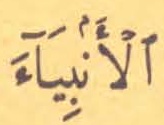 ٱلۡأَنۢبِيَآءَ